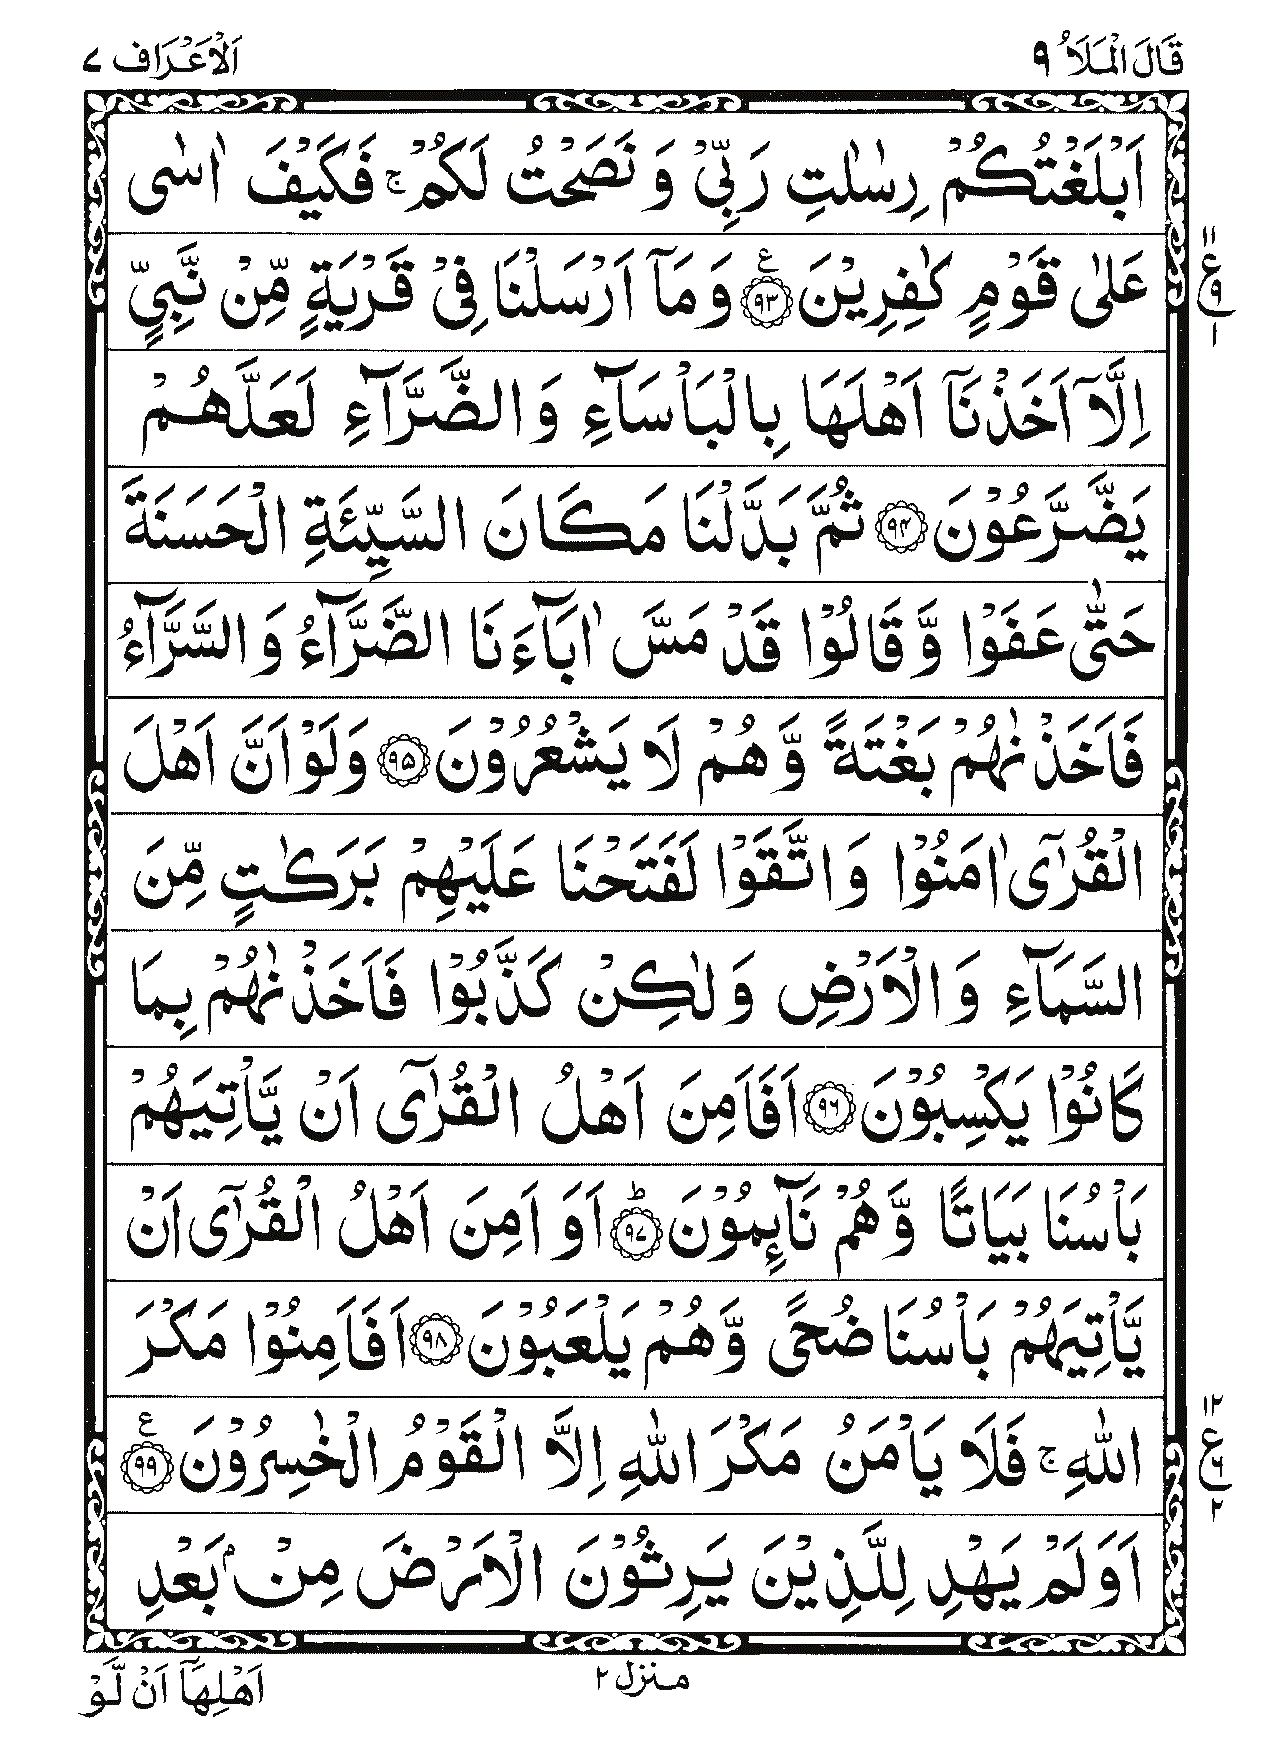 قَالَ الْمَلَاُ ٩
اَلْاَعْرَاف ٧
اَبْلَغْتُكُمْ رِسٰلٰتِ رَبِّیْ وَ نَصَحْتُ لَكُمْ ۚ فَكَیْفَ اٰسٰی
عَلٰی قَوْمٍ كٰفِرِیْنَ ۧ﴿٩٣﴾ وَ مَاۤ اَرْسَلْنَا فِیْ قَرْیَةٍ مِّنْ نَّبِیٍّ
١١
ع
٩
١
اِلَّاۤ اَخَذْنَاۤ اَهْلَهَا بِالْبَاْسَآءِ وَ الضَّرَّآءِ لَعَلَّهُمْ
یَضَّرَّعُوْنَ ﴿٩٤﴾ ثُمَّ بَدَّلْنَا مَكَانَ السَّیِّئَةِ الْحَسَنَةَ
حَتّٰی عَفَوْا وَّ قَالُوْا قَدْ مَسَّ اٰبَآءَنَا الضَّرَّآءُ وَ السَّرَّآءُ
فَاَخَذْنٰهُمْ بَغْتَةً وَّ هُمْ لَا یَشْعُرُوْنَ ﴿٩٥﴾ وَ لَوْ اَنَّ اَهْلَ
الْقُرٰۤی اٰمَنُوْا وَ اتَّقَوْا لَفَتَحْنَا عَلَیْهِمْ بَرَكٰتٍ مِّنَ
السَّمَآءِ وَ الْاَرْضِ وَ لٰكِنْ كَذَّبُوْا فَاَخَذْنٰهُمْ بِمَا
كَانُوْا یَكْسِبُوْنَ ﴿٩٦﴾ اَفَاَمِنَ اَهْلُ الْقُرٰۤی اَنْ یَّاْتِیَهُمْ
بَاْسُنَا بَیَاتًا وَّ هُمْ نَآئِمُوْنَ ؕ﴿٩٧﴾ اَوَ اَمِنَ اَهْلُ الْقُرٰۤی اَنْ
یَّاْتِیَهُمْ بَاْسُنَا ضُحًی وَّ هُمْ یَلْعَبُوْنَ ﴿٩٨﴾ اَفَاَمِنُوْا مَكْرَ
اللّٰهِ ۚ فَلَا یَاْمَنُ مَكْرَ اللّٰهِ اِلَّا الْقَوْمُ الْخٰسِرُوْنَ ۧ﴿٩٩﴾
١٢
ع
٦
٢
اَوَ لَمْ یَهْدِ لِلَّذِیْنَ یَرِثُوْنَ الْاَرْضَ مِنْۢ بَعْدِ
منزل ٢
اَهْلِهَاۤ اَنْ لَّوْ